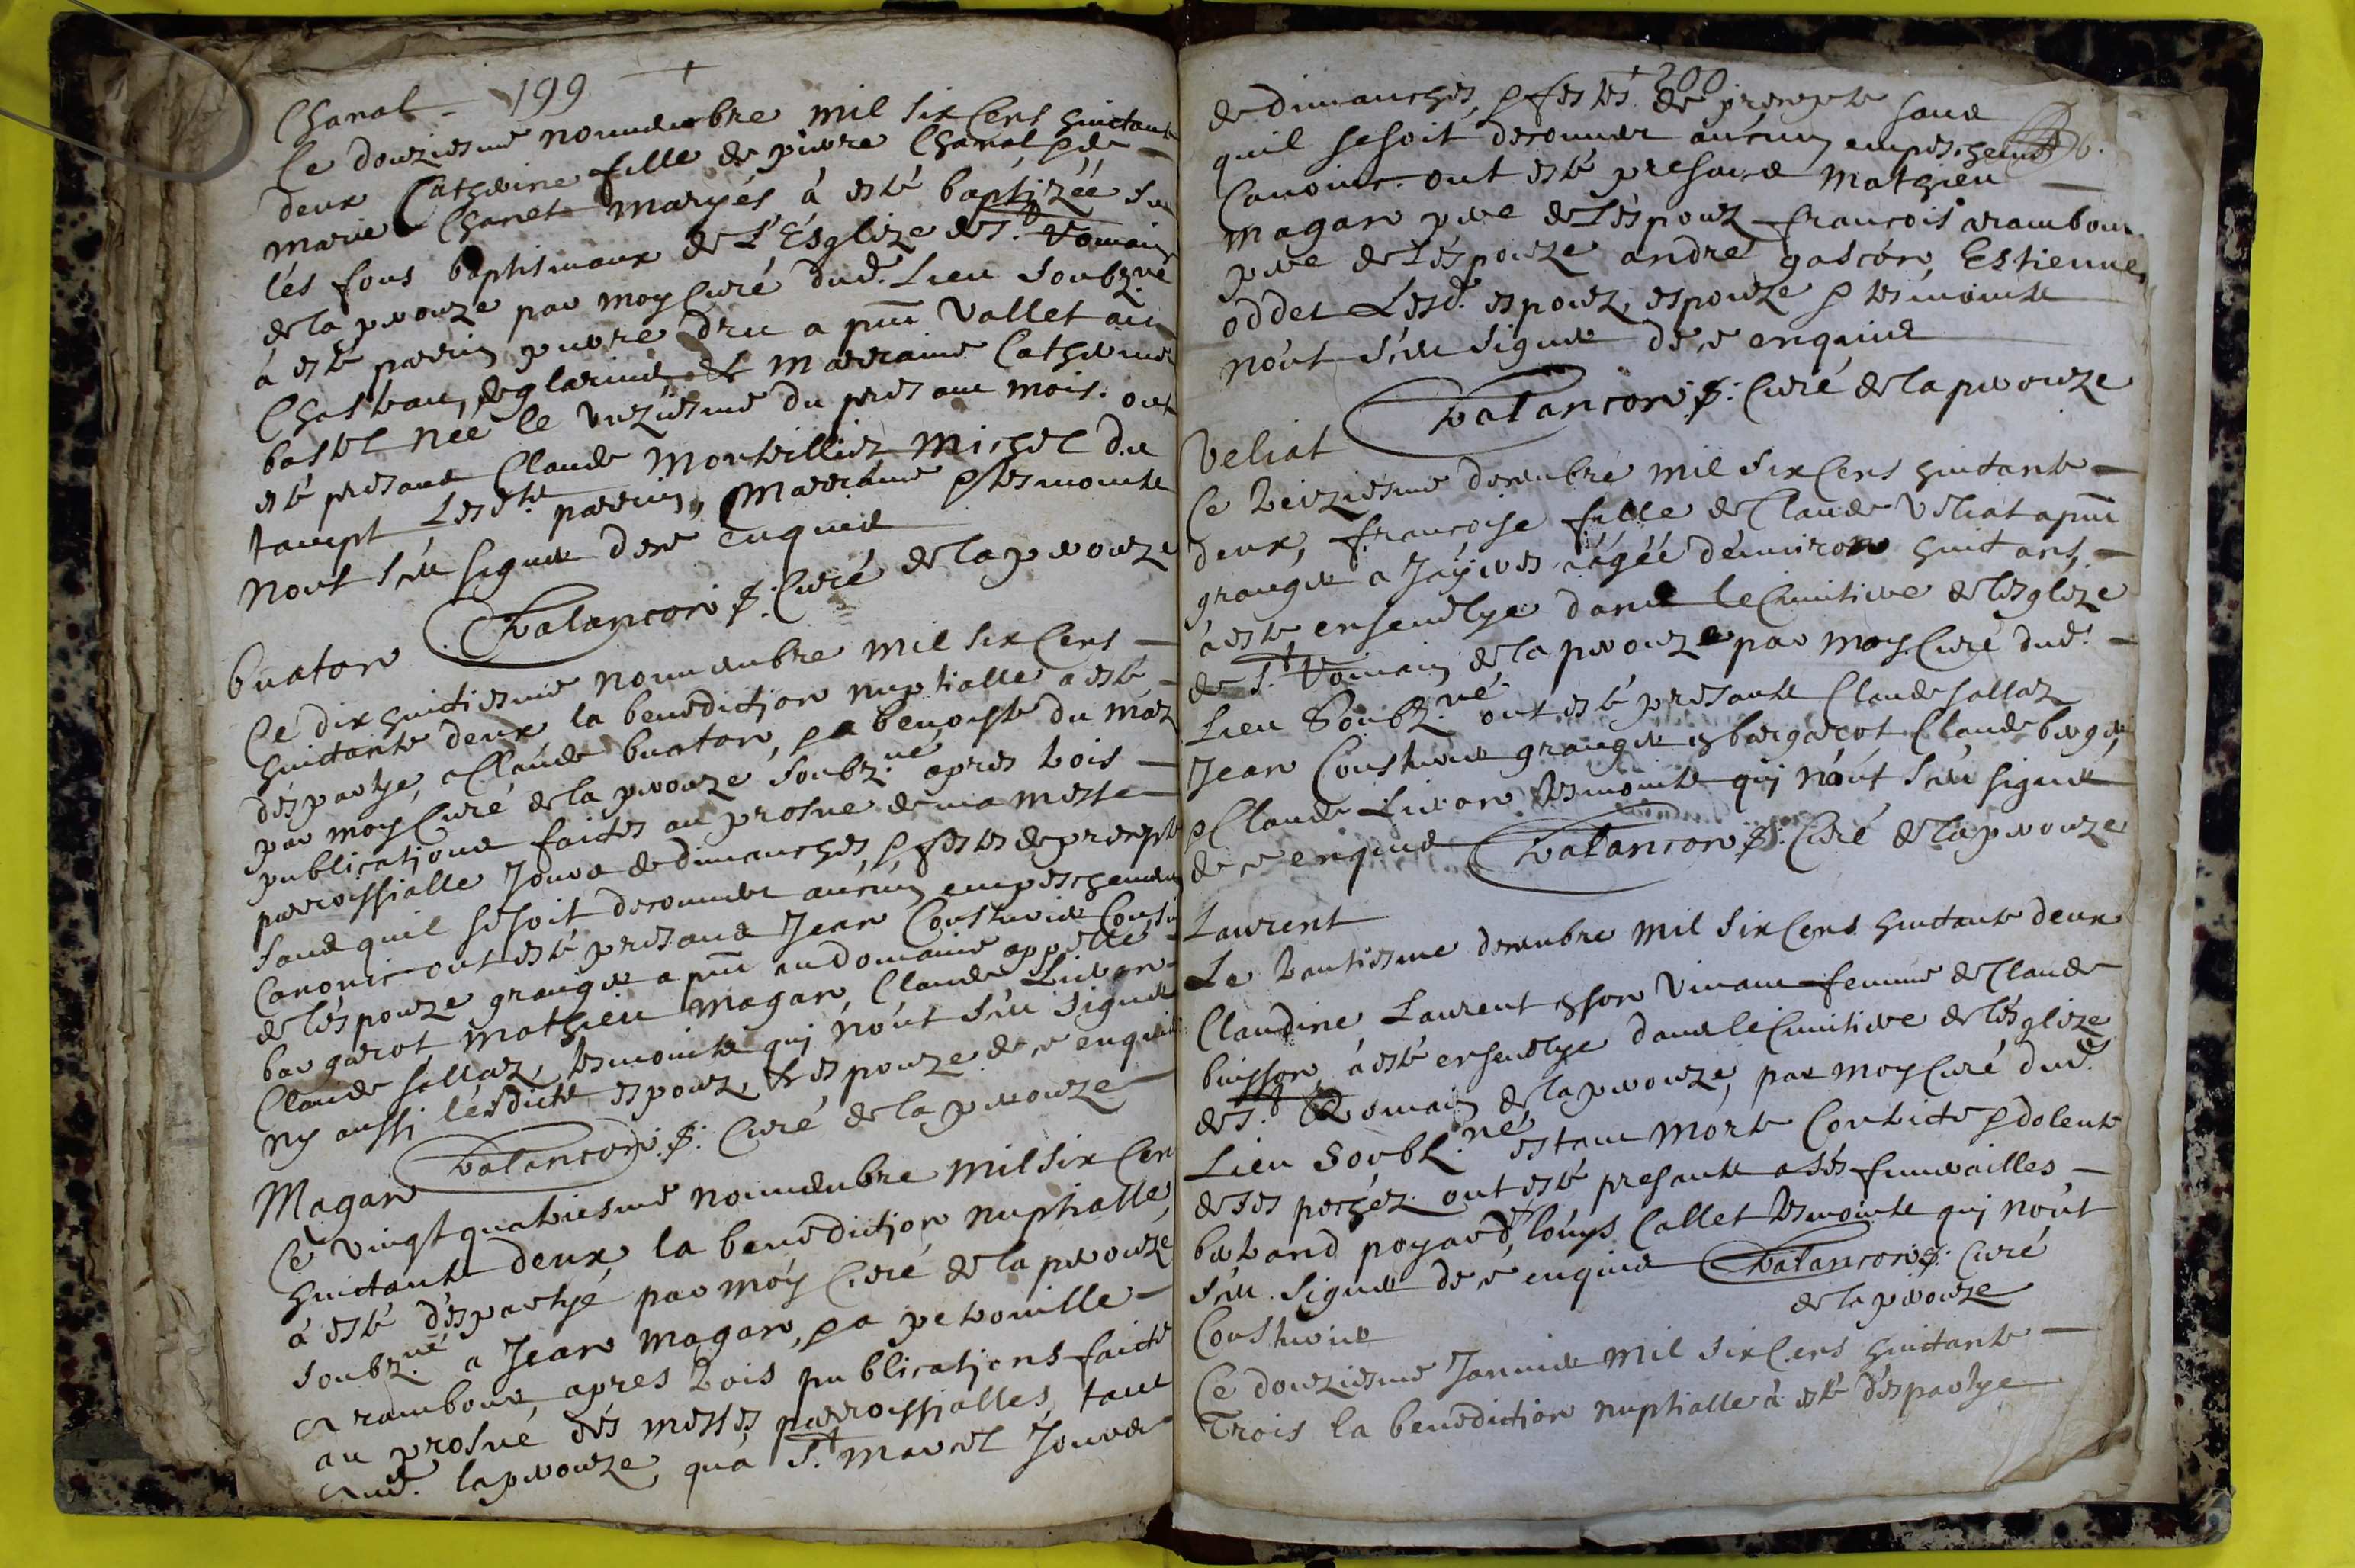 Chanal - 199
Ce douziesme nouuembre mil six Cens huictante
deux Catherine fille de pierre Chanal & de
marie Chanet maryés à esté baptizéé sur
lés fons baptismaux de l'Esglize de St. Romain
de la peyrouze par moy Curé dud. Lieu soubz.né
à esté parrin pierre dru a pnt vallet au
Chasteau de glarins et marraine Catherine
bastel née le vnziesme du present mois. ont
esté presans Claude Monteillier Michel du
tampt Lesdts. parrin, marraine & tesmoints
nont sceu signer de ce enquis
Valancon p: Curé de la peyrouze
Buaton
Ce dix huictiesme nouuembre mil six Cens
huictante deux la benediction nuptialle a esté
départye, a Claude buaton, & a benoiste du més
par moy Curé de la peyrouze soubz.né apres trois
publications faites au prosne de ma messe
parroissialle Jours de dimanches, & festes de precepte
sans quil se soit decouuert aucun empeschement
Canonic ont esté presans Jean Constancie Cousin
de léspouze granger a pnt au domaine appellé
bargarot mathieu magan, Claude Liuron
Claude sallaz, tesmoints qui nónt sceu signer
ny aussi lésdicts espouz, & espouze de ce enquis
Valancon p: Curé de la peyrouze
Magan
Ce vingt quatriesme nouuembre mil six Cen
huictante deux la benediction nuptialle,
à esté déspartyé par móy Curé de la peyrouze
soubz.né a Jean magan, & a petronille
arambour, apres trois publications faicte
au prosné dés messés parroissialles, tant
aud. lapeyrouze, quá St. marcel Jours
de dimanches, & festés 200 de precepte sans
quil se soit decouuert aucun empeschement
Canonic. ont esté presans mathieu
magan pere de léspouz francois arambour
pere de léspouze andré gascón, Estienne
oddet Lesd. espouz, espouze & tesmoints
nónt sceu signer de ce enquis
Valancon p: Curé de la peyrouze
Veliat
Ce treiziesme decembre mil six Cens huictante
deux, francoise fille de Claude Veliat a pnt
granger a Jayeres aágéé dénuiron huict ans,
à esté enseuelye dans le Cimitiere de lésglize
de St. Romain de la peyrouze par moy Curé dud.
Lieu Soubz.né ont esté presants Claude sallaz
Jean Constancie granger en bargarot Claude berger
& Claude Liuron tesmoints qui nónt sceu signer
de ce enquis Valancon p: Curé de la peyrouze
Laurent
Le vantiesme decembre mil six Cens huictante deux
Claudine Laurent en son viuant femme de Claude
buisson à esté enseuelye dans le Cimitiere de lésglize
de St. Romain de la peyrouze, par moy Curé dud.
Lieu Soubz.né estant mórte Contricte & dolente
de ses pechez. ont esté presants a sés funerailles
bertrand poyard, lóuys Callet tesmoints qui nónt
sceu signer de ce enquis Valancon p: Curé
de la peyrouze
Constancie
Ce douziesme Januier mil six Cens huictante
Trois la benediction nuptialle à esté départye